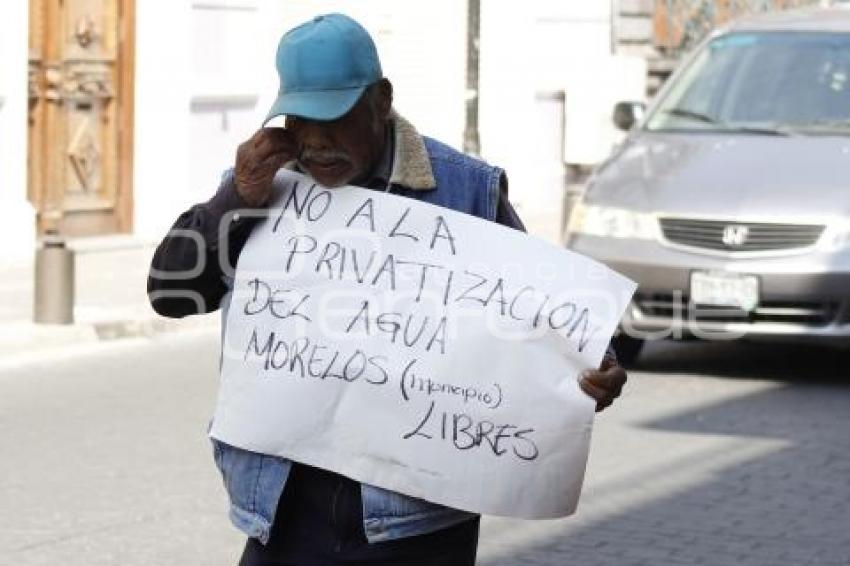 NO A LA
PRIVATIZACION
DEL AGUA
MORELOS (municipio)
LIBRES
agencia
enfoque